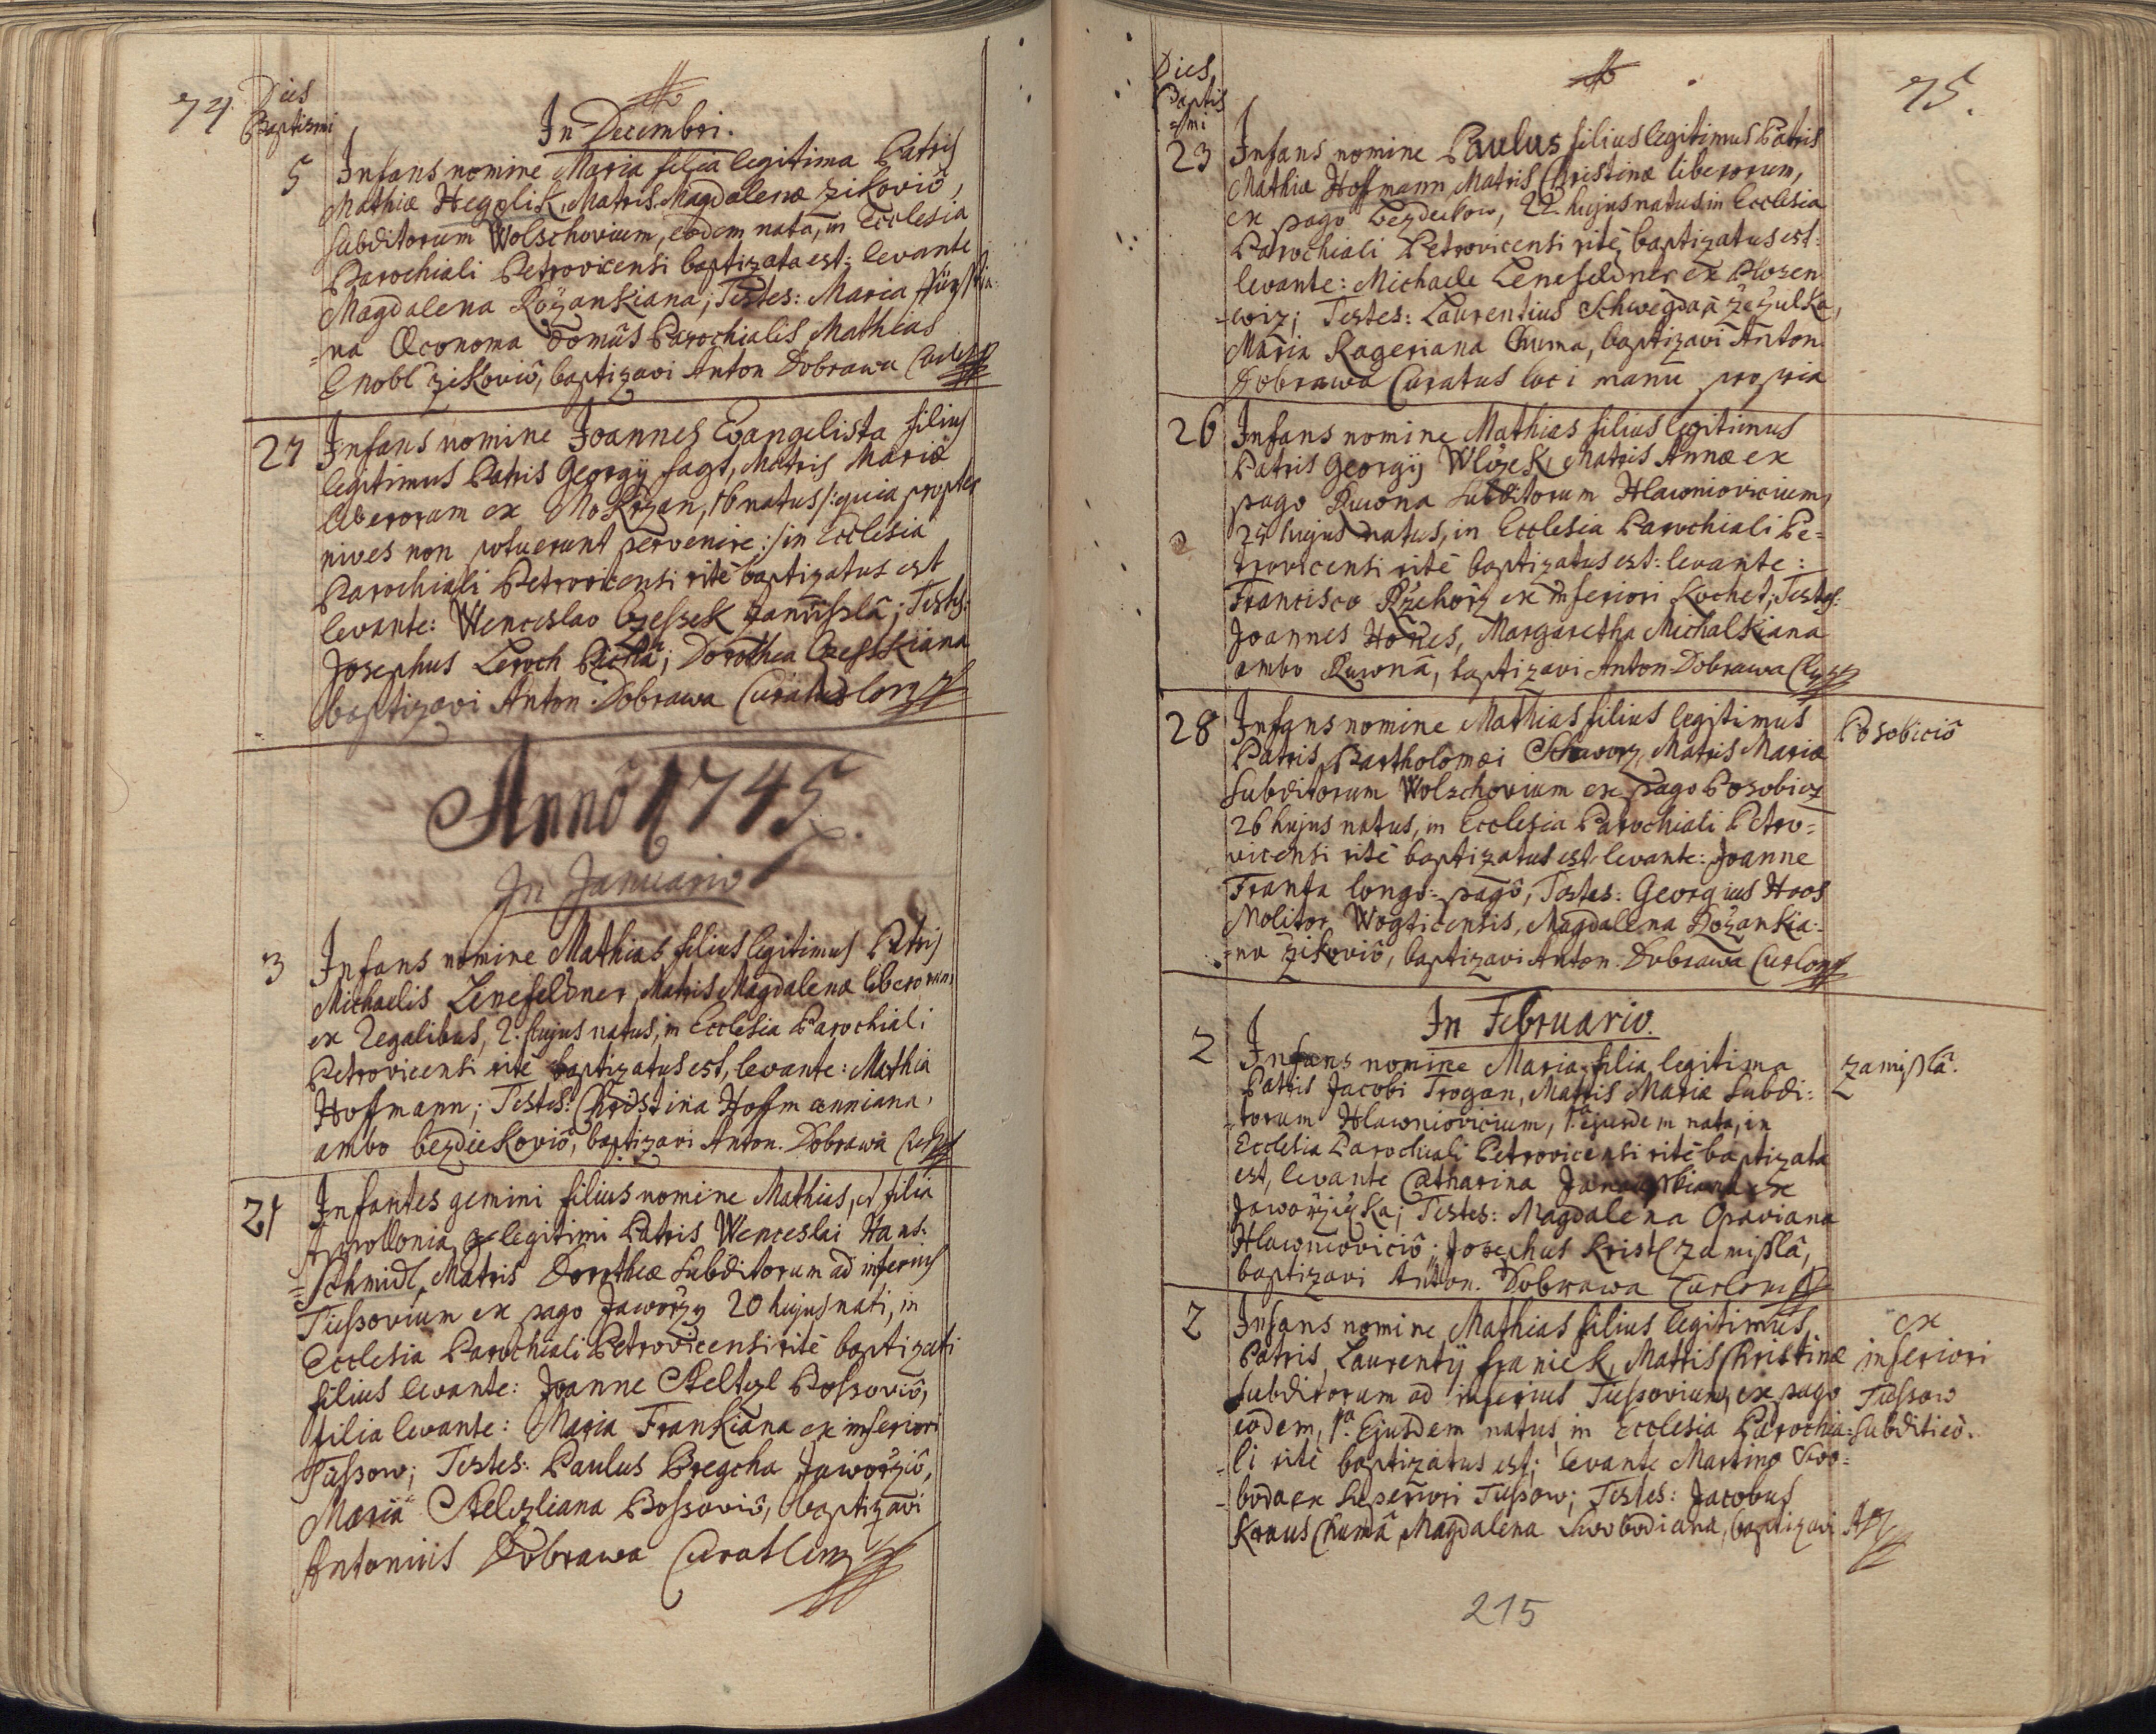 74
Dies
Baptismi
In Decembri.
5
Infans nomine Maria filia legitima Patris
Mathiæ Hegolik, Matris Magdalenæ Zikoviô,
subditorum Wolschovium, eodem nata, in Ecclesia
Parochiali Petrovicensi baptizata est: levante
Magdalena Rozankiana; Testes: Maria
=na Œconoma Domûs Parochialis, Mathias
Cnobl Zikoviô, baptizavi Anton Dobrawa
27
Infans nomine Joannes Evangelista filius
legitimus Patris Georgÿ Sagt, Matris Mariæ
liberorum ex Mokrzan, 16 natus /: quia propter
nives non potuerunt pervenire :/ in Ecclesia
Parochiali Petrovicensi rité baptizatus est
levante: Wenceslao Czessek Zamisslâ; Testes:
Josephus Leroch Dorothea Czesskiana
baptizavi Anton. Dobrawa Curatus
Annô 1745.
In Januario
3
Infans nomine Mathias filius legitimus Patris
Michaelis Lenefeldner, Matris Magdalenæ liberorum
ex Regalibus, 2. hujus natus, in Ecclesia Parochiali
Petrovicensi rité baptizatus est, levante: Mathia
Hoffmann; Testes: Christina Hoffmanniana,
ambo bezdiekoviô, baptizavi Anton. Dobrawa
21
Infantes gemini filius nomine Mathias, et filia
Apollonia legitimi Patris Wenceslai Hans=
=schmidl, Matris Dorotheæ subditorum ad inferius
Tiessovium ex pago Jaworzy 20 hujus nati, in
Ecclesia Parochiali Petrovicensi rité baptizati
filius levante: Joanne Steltzl Possoviô,
filia levante: Maria Frankiana ex inferiori
Tiessow; Testes: Paulus Pregcha Jaworziô,
Maria Stelzliana Possoviô, baptizavi
Antonius Dobrawa Curat
75.
Dies
Baptis
=mi
23
Infans nomine Paulus filius legitimus Patris
Mathiæ Hoffmann, Matris Christinæ liberorum,
ex pago Bezdiekow, 22. hujus natus in Ecclesia
Parochiali Petrovicensi rité baptizatus est:
levante: Michaele Lenefeldner ex Plosen
=wiz; Testes: Laurentius Schwegda â Zezulka,
Maria Rageriana Chuma, baptizavi Anton.
Dobrawa Curatus loci manu propria
26
Infans nomine Mathias filius legitimus
Patris Georgÿ Wlczek, Matris Annæ ex
pago Ruwna subditorum Hlawniovicium,
25 hujus natus, in Ecclesia Parochiali Pe=
trovicensi rité baptizatus est: levante:
Francisco Rzehorz ex inferiori Kochet; Testes:
Joannes Hones, Margaretha Michalkiana
ambo Ruwnâ, baptizavi Anton Dobrawa
28
Infans nomine Mathias filius legitimus
Patris Bartholomæi Schworz, Matris Mariæ
subditorum Wolschovium ex pago Posobicz
26 hujus natus, in Ecclesia Parochiali Petro=
vicensi rité baptizatus est levante: Joanne
Franta longo=pagô, Testes: Georgius Hoos
Molitor Wogticensis, Magdalena Rozankia=
=na Zikoviô, baptizavi Anton. Dobrawa
Posobiciô
In Februario.
2
Infans nomine Maria filia legitima
Patris Jacobi Trogan, Matris Mariæ subdi=
=torum Hlawniovicium, 1ª ejusdem nata, in
Ecclesia Parochiali Petrovicensi rité baptizata
est, levante Catharina ex
Jaworziczka; Testes: Magdalena Opaviana
Hlawnioviciô; Josephus Kristl Zamisslâ,
baptizavi Anton. Dobrawa
Zamisslâ.
2
Infans nomine Mathias filius legitimus
Patris Laurentÿ Franiek, Matris Christinæ
subditorum ad inferius Tiessovium, ex pago
eodem, 1ª. Ejusdem natus, in Ecclesia Parochia=
=li rité baptizatus est; levante Martino Swo=
=boda ex Superiori Tiessow; Testes: Jacobus
Kraus Chumâ, Magdalena Swobodiana, baptizavi
ex
inferiori
Tiessow
subditiô.
215